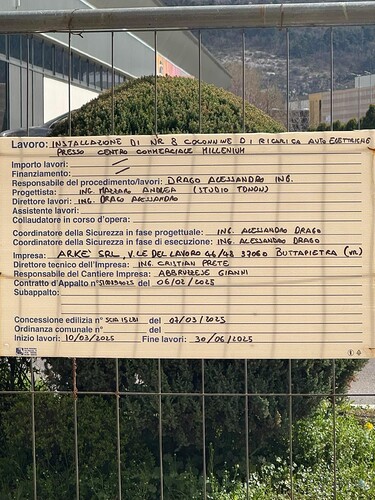 Lavoro: INSTALLAZIONE DI NR 8 COLONNINE DI RICARICA AUTO ELETTRICHE
PRESSO CENTRO COMMERCIALE MILLENIUM
Importo lavori: /
Finanziamento: /
Responsabile del procedimento/lavori: DRAGO ALESSANDRO ING.
Progettista: ING. MAZZARO ANDREA (STUDIO TONON)
Direttore lavori: ING. DRAGO ALESSANDRO
Assistente lavori:
Collaudatore in corso d'opera:
Coordinatore della Sicurezza in fase progettuale: ING. ALESSANDRO DRAGO
Coordinatore della Sicurezza in fase di esecuzione: ING. ALESSANDRO DRAGO
Impresa: ARKE' SRL, V.LE DEL LAVORO 46/48 37060 BUTTAPIETRA (VR)
Direttore tecnico dell'Impresa: ING. CRISTIAN PRETE
Responsabile del Cantiere Impresa: ABBRUZESE GIANNI
Contratto d'Appalto n° del 06/02/2025
Subappalto:
Concessione edilizia n° SCIA 15281 del 07/03/2025
Ordinanza comunale n° del
Inizio lavori: 10/03/2025 Fine lavori: 30/06/2025